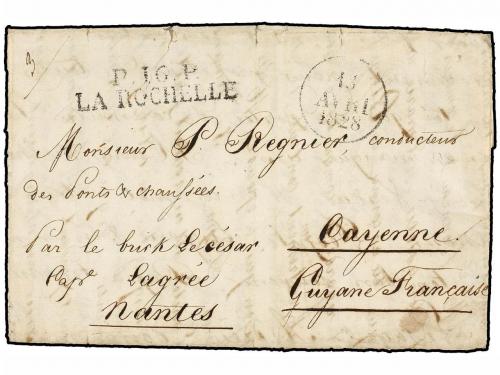 P. 16. P.
LA ROCHELLE
13
AVRI
1828
Monsieur P. Regnier conducteur
des Ponts & chaussées.
Par le brick Le César
Cape Lagrée
Nantes
Cayenne.
Guyane Française